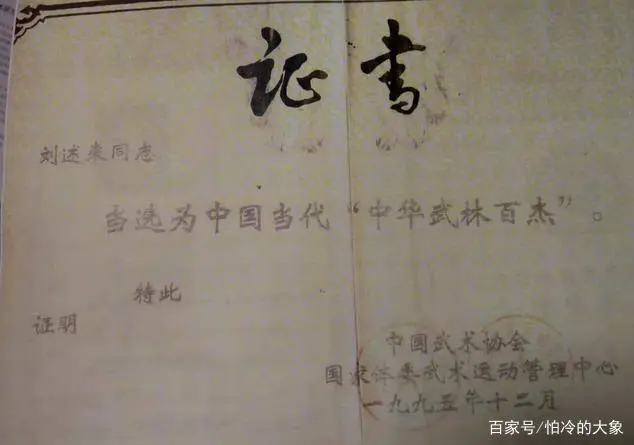 证书
刘述来同志
当选为中国当代“中华武林百杰”。
特此
证明
中国武术协会
国家体委武术运动管理中心
一九九五年十二月
百家号/怕冷的大象